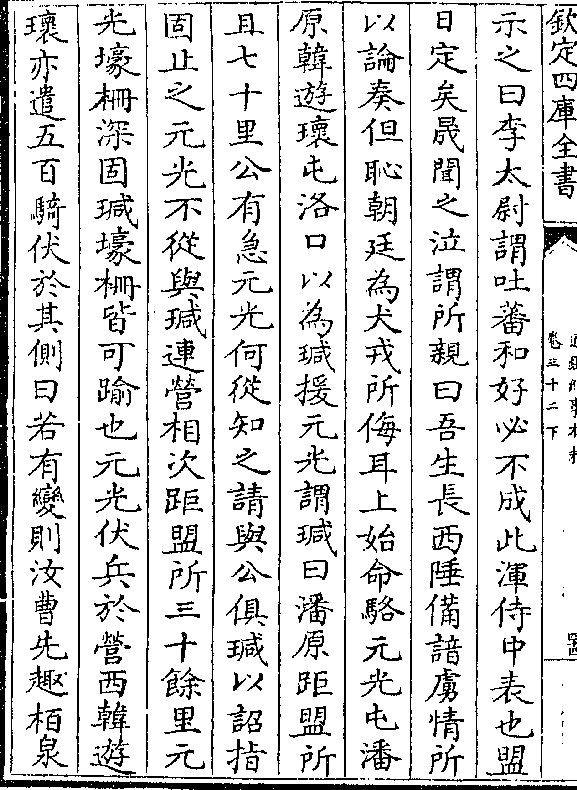 欽定四庫全書
卷三十二下
示之曰李太尉謂吐蕃和好必不成此渾侍中表也盟
日定矣晟聞之泣謂所親曰吾生長西陲備諳虜情所
以論奏但恥朝廷為犬戎所侮耳上始命駱元光屯潘
原韓遊瓌屯洛口以為瑊援元光謂瑊曰潘原距盟所
且七十里公有急元光何從知之請與公俱瑊以詔指
固止之元光不從與瑊連營相次距盟所三十餘里元
光壕柵深固瑊壕柵皆可踰也元光伏兵於營西韓遊
瓌亦遣五百騎伏於其側曰若有變則汝曹先趣柏泉